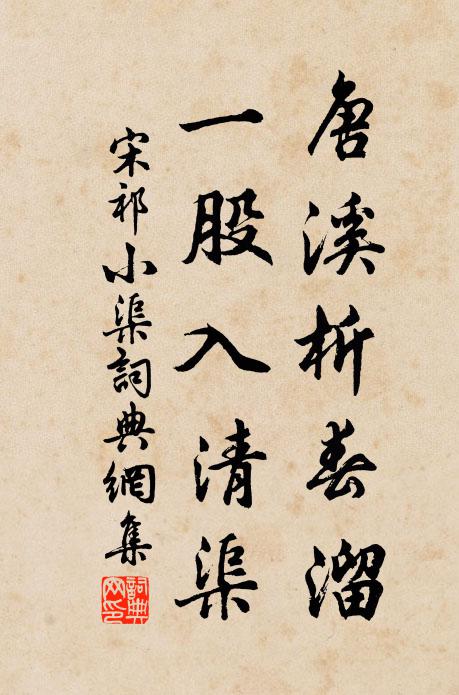 唐溪析春溜
一股入清渠
宋祁小渠詞典網集
詞典網印